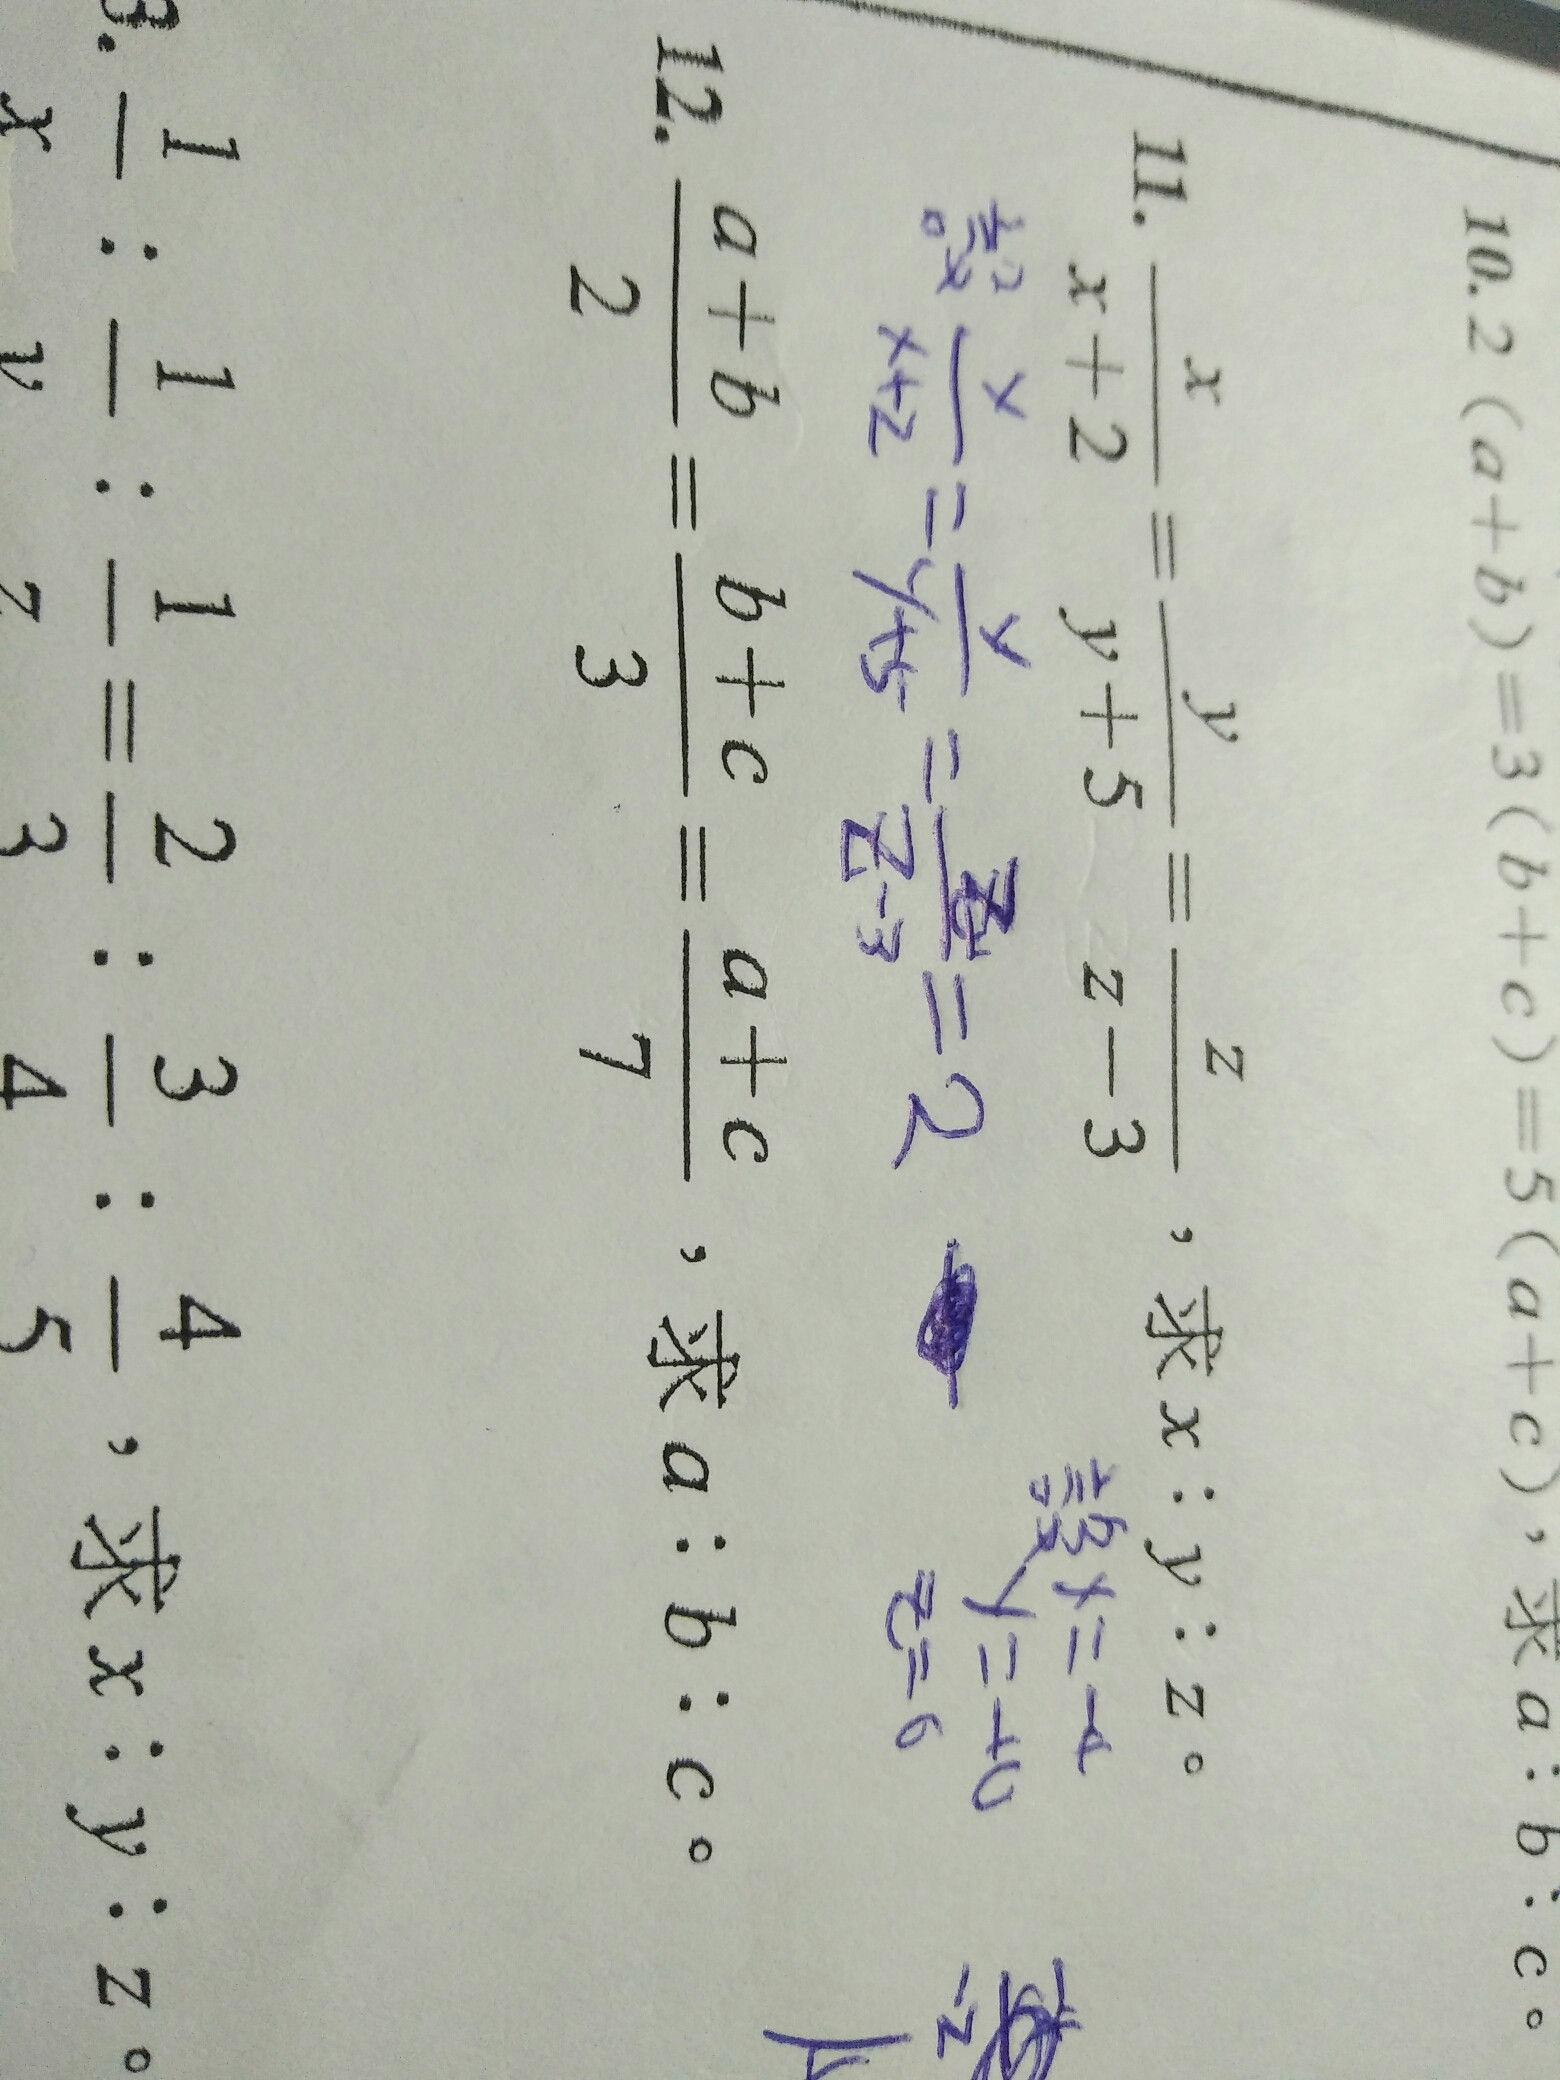 10. 2(a+b)=3(b+c)=5(a+c), 求a:b:c。
11. x/(x+2) = y/(y+5) = z/(z-3), 求x:y:z。
x/(x+2) = y/(y+5) = z/(z-3) = 2
x=-4
y=-10
z=6
12. (a+b)/2 = (b+c)/3 = (a+c)/7, 求a:b:c。
3. 1/x : 1/y : 1/z = 2/3 : 3/4 : 4/5, 求x:y:z。